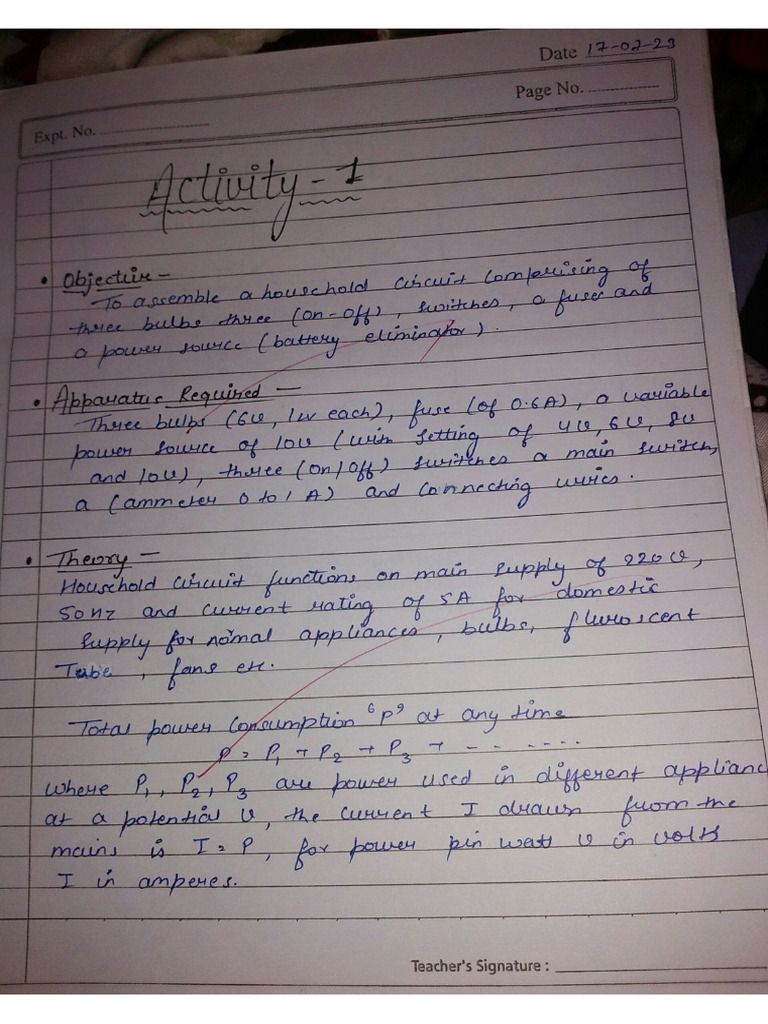 Date 17-02-23
Page No. ..............
Expt. No. ......................
Activity - 1
• Objective -
To assemble a household circuit comprising of
three bulbs three (on-off), switches, a fuse and
a power source (battery eliminator).
• Apparatus Required -
Three bulbs (6v, 1w each), fuse (of 0.6A), a variable
power source of 10v (with setting of 4v, 6v, 8v
and 10v), three (on/off) switches a main switch,
a (ammeter 0 to 1 A) and connecting wires.
• Theory -
Household circuit functions on main supply of 220v,
50Hz and current rating of 5A for domestic
supply for nomal appliances, bulbs, fluroscent
Tube, fans etc.
Total power consumption 'P' at any time
P = P₁ + P₂ + P₃ + - - - ....
where P₁, P₂, P₃ are power used in different applianc
at a potential v, the current I drawn from the
mains is I = P, for power pin watt v in volts
I in amperes.
Teacher's Signature : _______________